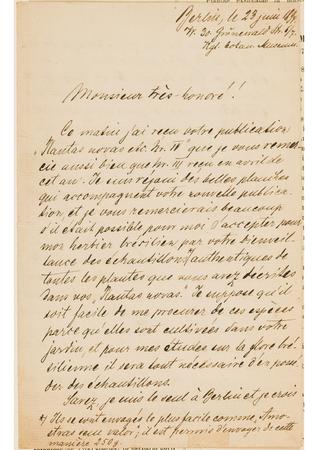 Berlin, le 23 juin
W. 30. Grünewald Str. 6/7.
Kgl. botan. Museum.
Monsieur très-honoré!
Ce matin j'ai reçu votre publication
„Plantas novas etc. Nr. IV" que je vous remer-
cie aussi bien que Nr. III reçu en avril de
cet an. Je suis réjoui des belles planches
qui accompagnent votre nouvelle publica-
tion, et je vous remercierais beaucoup
s'il était possible pour moi d'accepter pour
mon herbier brésilien par votre bienveil-
lance des échantillons authentiques de
toutes les plantes que vous avez décrites
dans vos „Plantas novas". Je suppose qu'il
soit facile de me procurer de ces espèces
parce qu'elles sont cultivées dans votre
jardin, et pour mes études sur la flore bré-
silienne il sera tout nécessaire d'en possé-
der des échantillons.
Savez, je suis le seul à Berlin et je crois
*) Ils se sont envoyés le plus facile comme „Amo-
stras sem valor; il est permis d'envoyer de cette
manière 250 g.